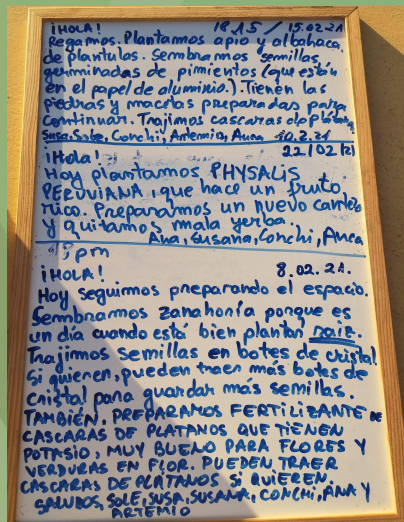 ¡HOLA! 18:15 / 15.02.21
Regamos. Plantamos apio y albahaca
de plantulas. Sembramos semillas
germinadas de pimientos (que están
en el papel de aluminio.) Tienen las
piedras y macetas preparadas para
continuar. Trajimos cascaras de plátano
Susa, Sole, Conchi, Artemio, Auca 10.2.21
¡Hola! 22/02/21
Hoy plantamos PHYSALIS
PERUVIANA, que hace un fruto
rico. Preparamos un nuevo cantero
y quitamos mala yerba.
Ana, Susana, Conchi, Auca
pm
¡HOLA! 8.02.21.
Hoy seguimos preparando el espacio.
Sembramos zanahoria porque es
un día cuando está bien plantar raíz.
Trajimos semillas en botes de cristal
Si quieren, pueden traer más botes de
cristal para guardar más semillas.
TAMBIÉN, PREPARAMOS FERTILIZANTE DE
CASCARAS DE PLATANOS QUE TIENEN
POTASIO, MUY BUENO PARA FLORES Y
VERDURAS EN FLOR. PUEDEN TRAER
CASCARAS DE PLÁTANOS SI QUIEREN.
SALUDOS, SOLE, SUSA, SUSANA, CONCHI, ANA Y
ARTEMIO